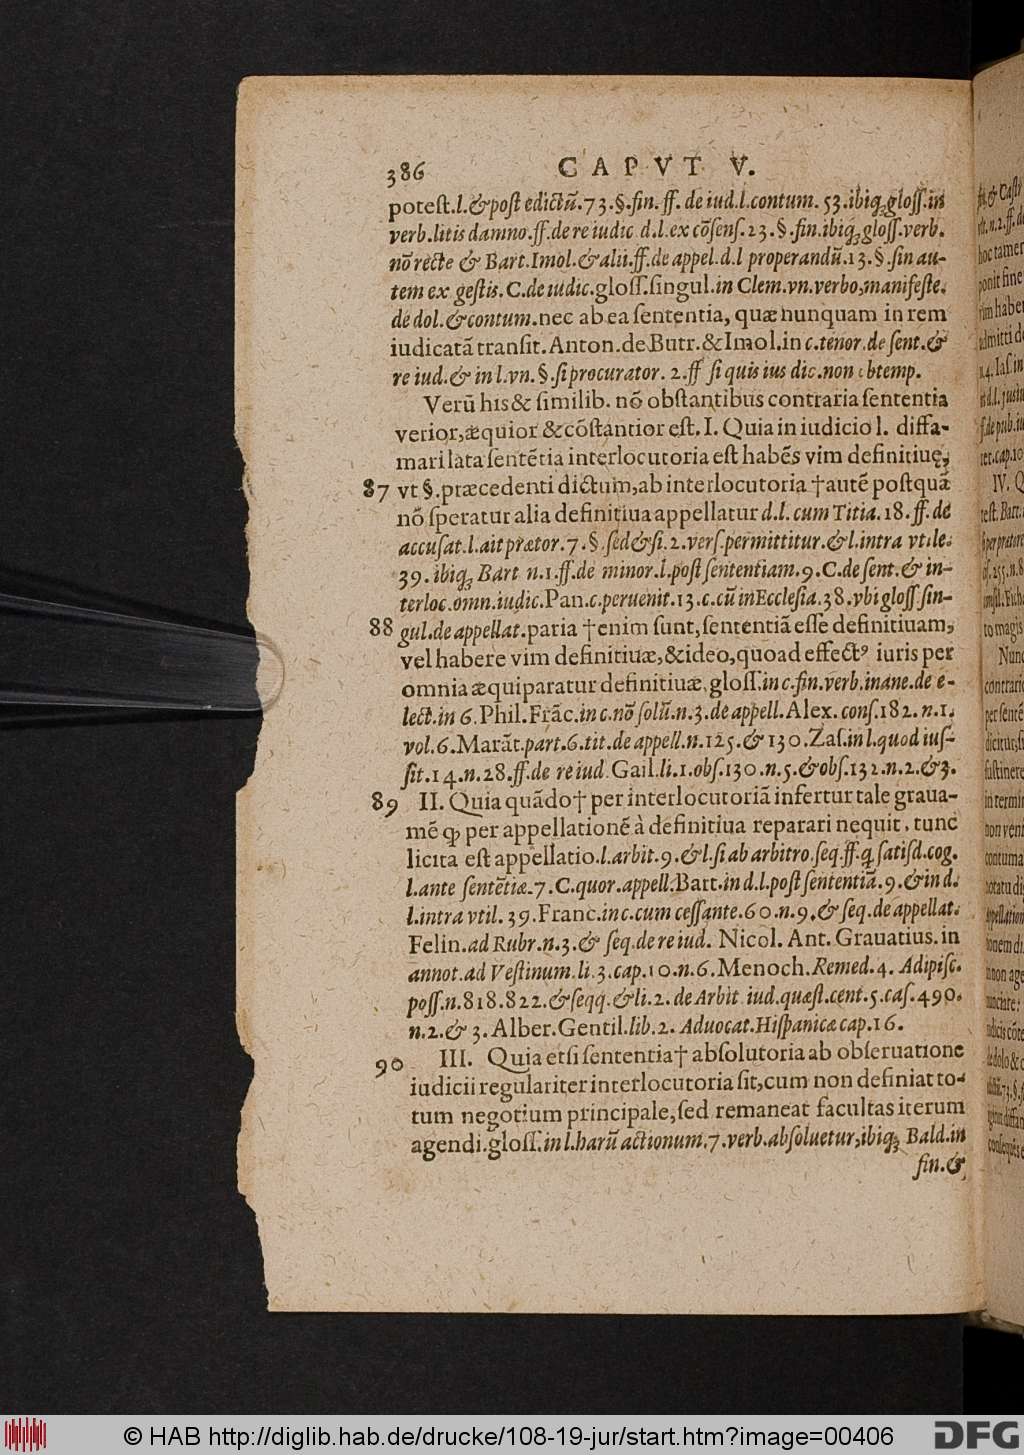 386 CAPVT V.
potest.l.&post edictũ.73.§.fin.ff. de iud.l.contum. 53.ibiq́;gloss.in
verb.litis damno.ff.de re iudic d.l.ex cõsens.23.§.fin.ibiq́;gloss.verb.
nõ recte & Bart.Imol.&alii.ff.de appel.d.l properandũ.13.§.sin au-
tem ex gestis.C.de iudic.gloss.singul.in Clem.vn.verbo,manifeste.
de dol.&contum.nec ab ea sententia, quæ nunquam in rem
iudicatã transit.Anton.de Butr.&Imol.in c.tenor.de sent.&
re iud.& in l.vn.§.si procurator. 2.ff si quis ius dic.non obtemp.
Verũ his & similib. nõ obstantibus contraria sententia
verior,æquior &cõstantior est. I. Quia in iudicio l. diffa-
mari lata sentẽtia interlocutoria est habẽs vim definitiuę,
87 vt §.præcedenti dictum,ab interlocutoria †autẽ postquã
nõ speratur alia definitiua appellatur d.l. cum Titia.18.ff.de
accusat.l.ait prætor.7.§.sed&si.2.vers.permittitur.&l.intra vtile.
39. ibiq́; Bart n.1.ff.de minor.l.post sententiam.9.C.de sent.& in-
terloc.omn.iudic.Pan.c.peruenit.13.c.cũ in Ecclesia.38.vbi gloss.sin-
88 gul.de appellat.paria †enim sunt,sententiã esse definitiuam,
vel habere vim definitiuæ,&ideo,quoad effectꝰ iuris per
omnia æquiparatur definitiuæ.gloss.in c.fin.verb.inane.de e-
lect.in 6.Phil.Frãc.in c.nõ solũ.n.3.de appell.Alex. cons.182.n.1.
vol.6.Marãt.part.6.tit.de appell.n.125.& 130.Zas.in l.quod ius-
sit.14.n.28.ff.de re iud Gail.li.1.obs.130.n.5.&obs.132.n.2.&3.
89 II. Quia quãdo† per interlocutoriã infertur tale graua-
mẽ ꝙ per appellationẽ à definitiua reparari nequit, tunc
licita est appellatio.l.arbit.9.&l.si ab arbitro.seq.ff.q̃ satisd.cog.
l.ante sentẽtiæ.7.C.quor.appell.Bart.in d.l.post sententiã.9.&in d.
l.intra vtil.39.Franc.in c.cum cessante.60.n.9.& seq.de appellat.
Felin.ad Rubr.n.3.& seq.de re iud. Nicol. Ant. Grauatius.in
annot.ad Vestinum.li.3.cap.10.n.6.Menoch.Remed.4. Adipisc.
poss.n.818.822.&seqq.&li.2. de Arbit iud.quæst.cent.5.cas.490.
n.2.& 3.Alber.Gentil.lib.2. Aduocat.Hispanicæ cap.16.
90 III. Quia etsi sententia† absolutoria ab obseruatione
iudicii regulariter interlocutoria sit,cum non definiat to-
tum negotium principale,sed remaneat facultas iterum
agendi.gloss.in l.harũ actionum.7.verb.absoluetur,ibiq́; Bald.in
fin.&
© HAB http://diglib.hab.de/drucke/108-19-jur/start.htm?image=00406
DFG